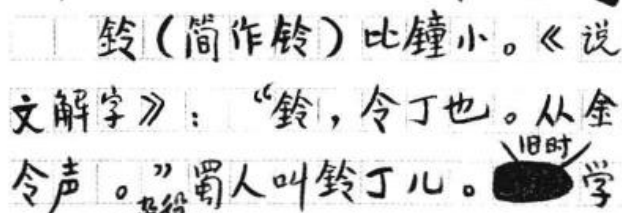 鈴（简作铃）比鐘小。《说
文解字》：“鈴，令丁也。从金
令声。”蜀人叫鈴丁儿。旧时学